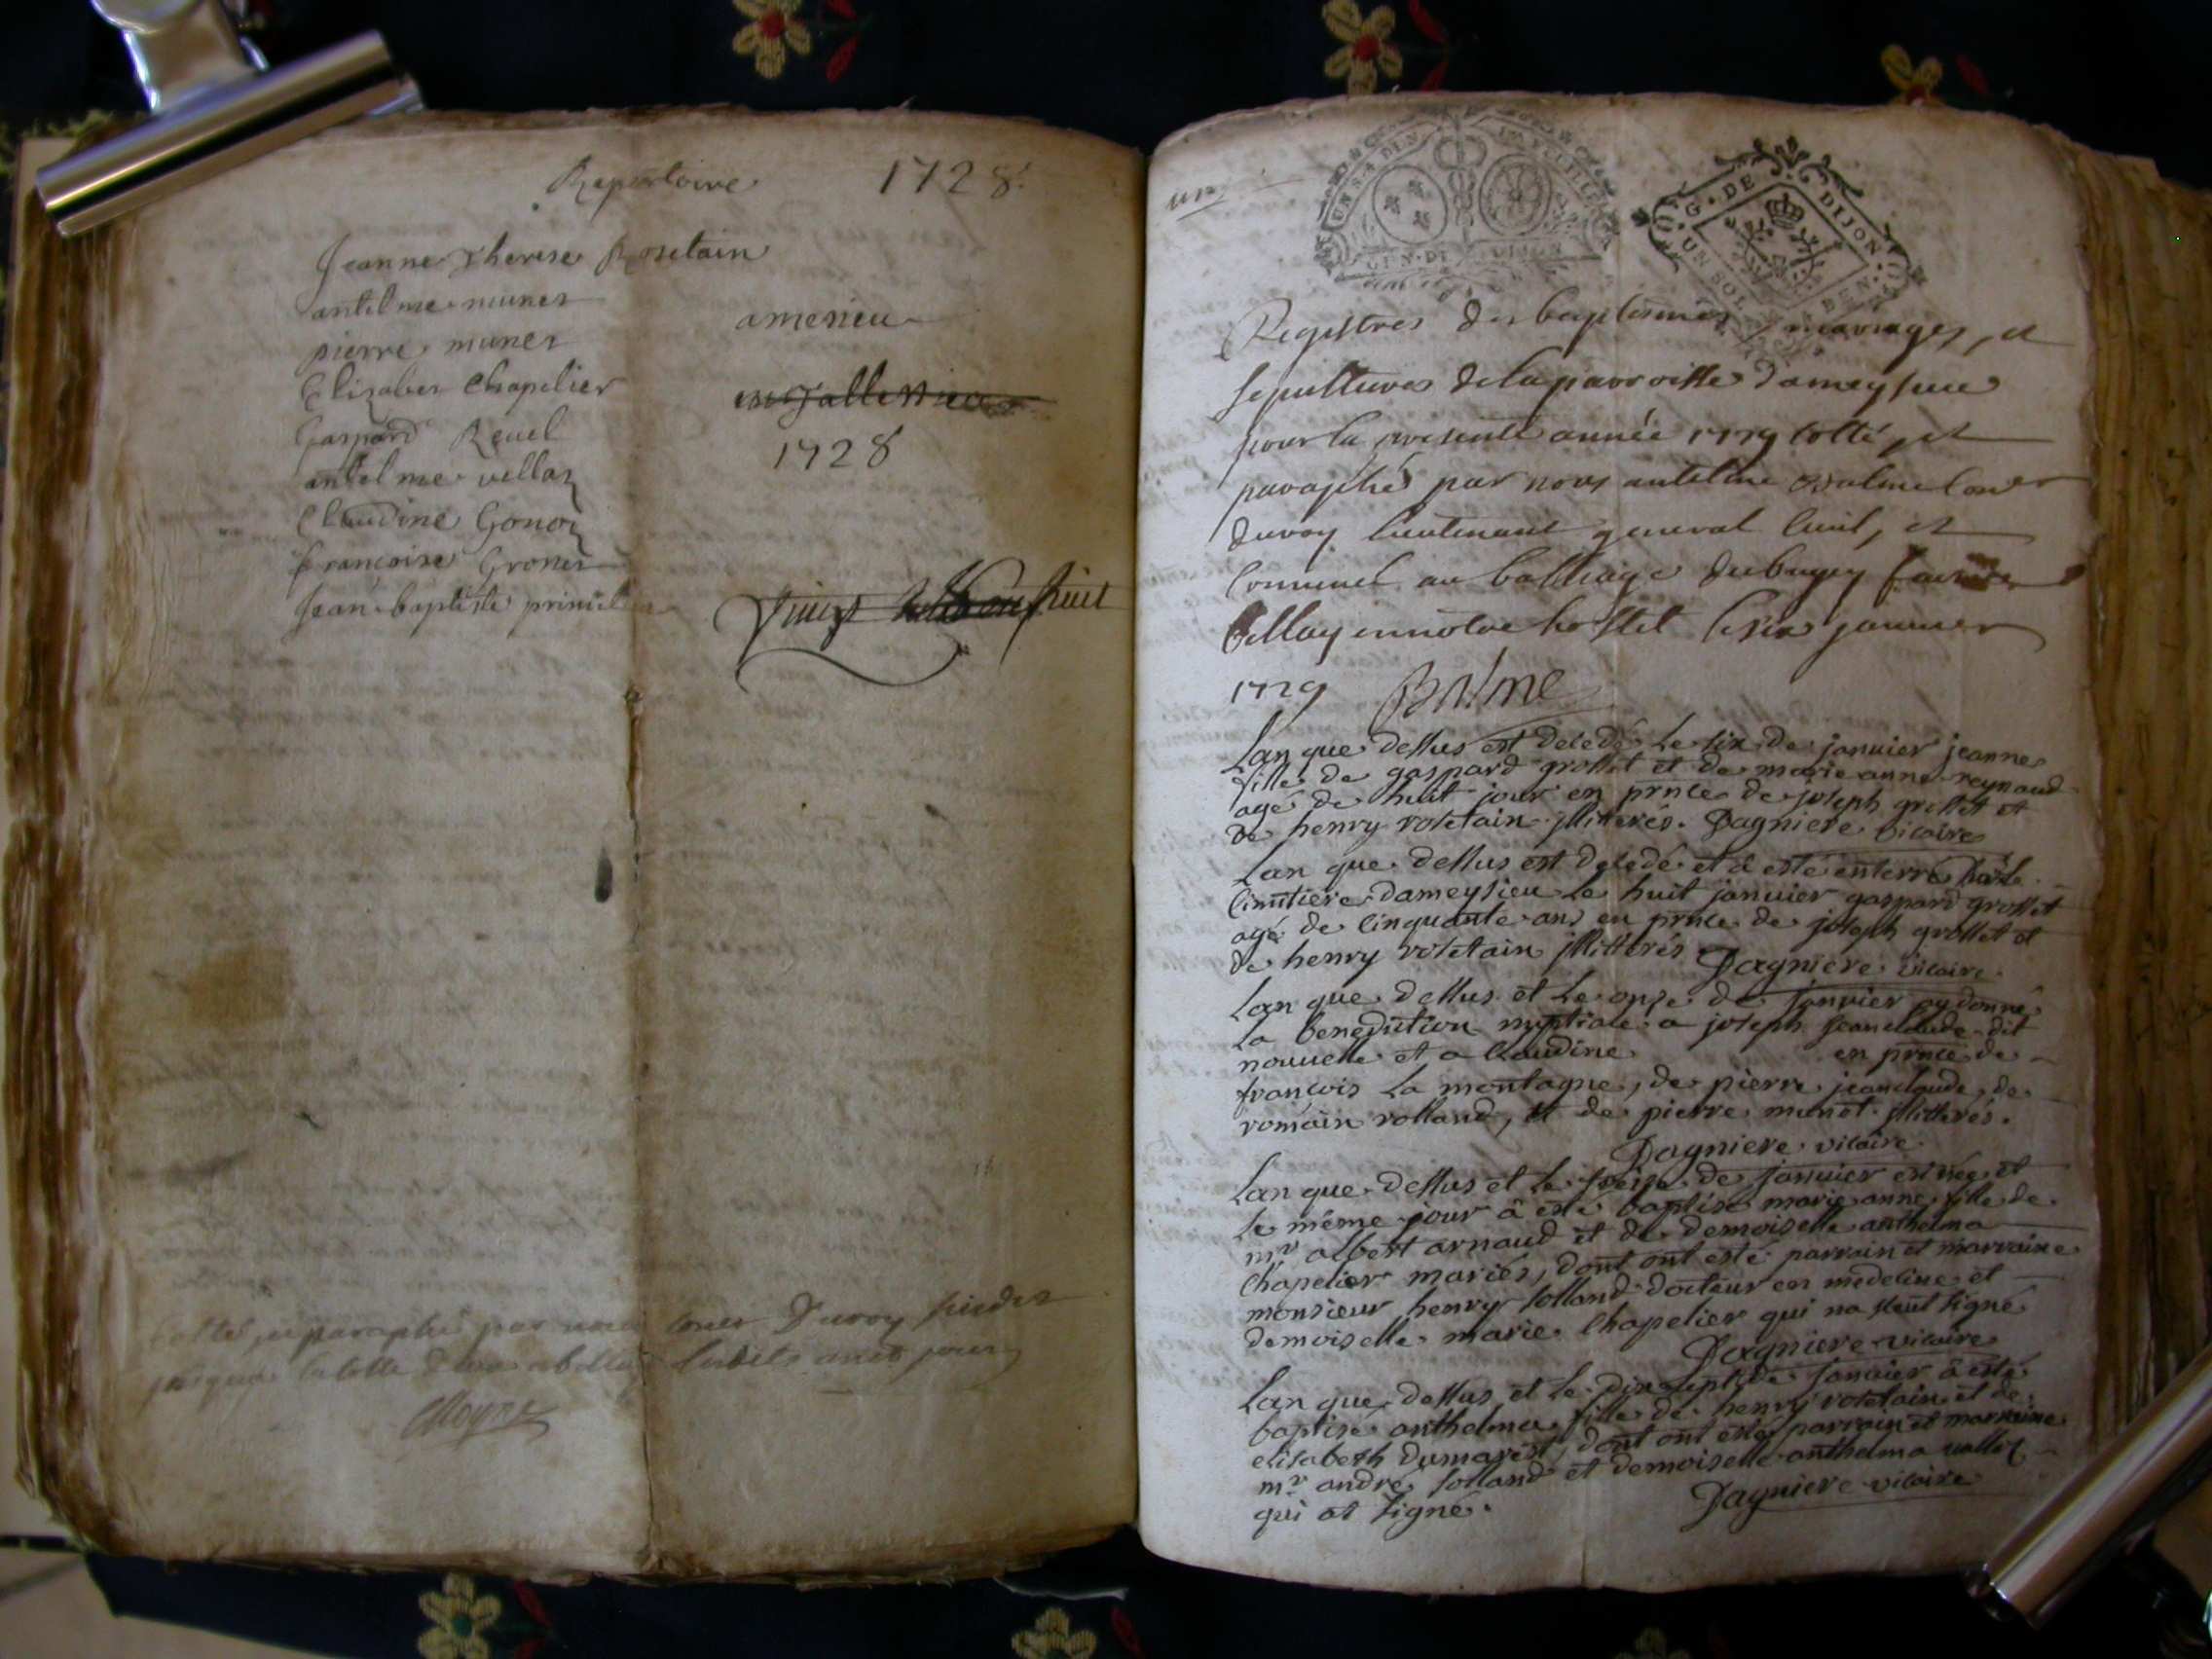 Repertoire 1728
Jeanne Therese Rosetain
antelme munet
pierre munet
Elizabet Chapelier
Gaspard Reuel
antelme vellaz
Claudine Gonoz
francoise Gronet
Jean baptiste
amesieu
1728
cotté et paraphé par nous
un
G. DE DIJON
UN SOL DEN.
GEN. DE DIJON
Registres des baptesmes, mariages, et
sepultures de la parroisse d'ameysieu
pour la presente année 1729 cotté, et
paraphé par nous antelme Balme Con.er
du roy lieutenant general Ciuil, et
Criminel au balliage du bugey
bellay en notre hostel le six januier
1729 Balme
Lan que dessus est decedé le six de januier jeanne
fille de gaspard grosset et de marie anne reynaud
agé de huit jour en pnce de joseph grosset et
de henry rosetain jllitterés. Dagniere vicaire
Lan que dessus est decedé et â esté enterré
Cimitiere dameysieu le huit januier gaspard grosset
agé de cinquante ans en pnce de joseph grosset et
de henry rosetain jllitterés Dagniere vicaire.
Lan que dessus et le onze de januier ay donné
La benediction nuptiale a joseph jeanclaude dit
nouuelle et a Claudine en pnce de
francois La montagne, de pierre jeanclaude, de
romain rolland, et de pierre munet jllitteres.
Dagniere vicaire.
Lan que dessus et le seize de januier est née et
le même jour â esté baptisé marie anne fille de
mr albert arnaud et de demoiselle anthelma
Chapelier mariés, dont ont esté parrain et marraine
monsieur henry solland docteur en medecine et
demoiselle marie Chapelier qui na sceut signé
Dagniere vicaire
Lan que dessus et le dix sept de januier â esté
baptisé anthelma fille de henry rosetain et de
elisabeth dumarest, dont ont estés parrain et marraine
mr andré solland et demoiselle anthelma
qui at signé. Dagniere vicaire